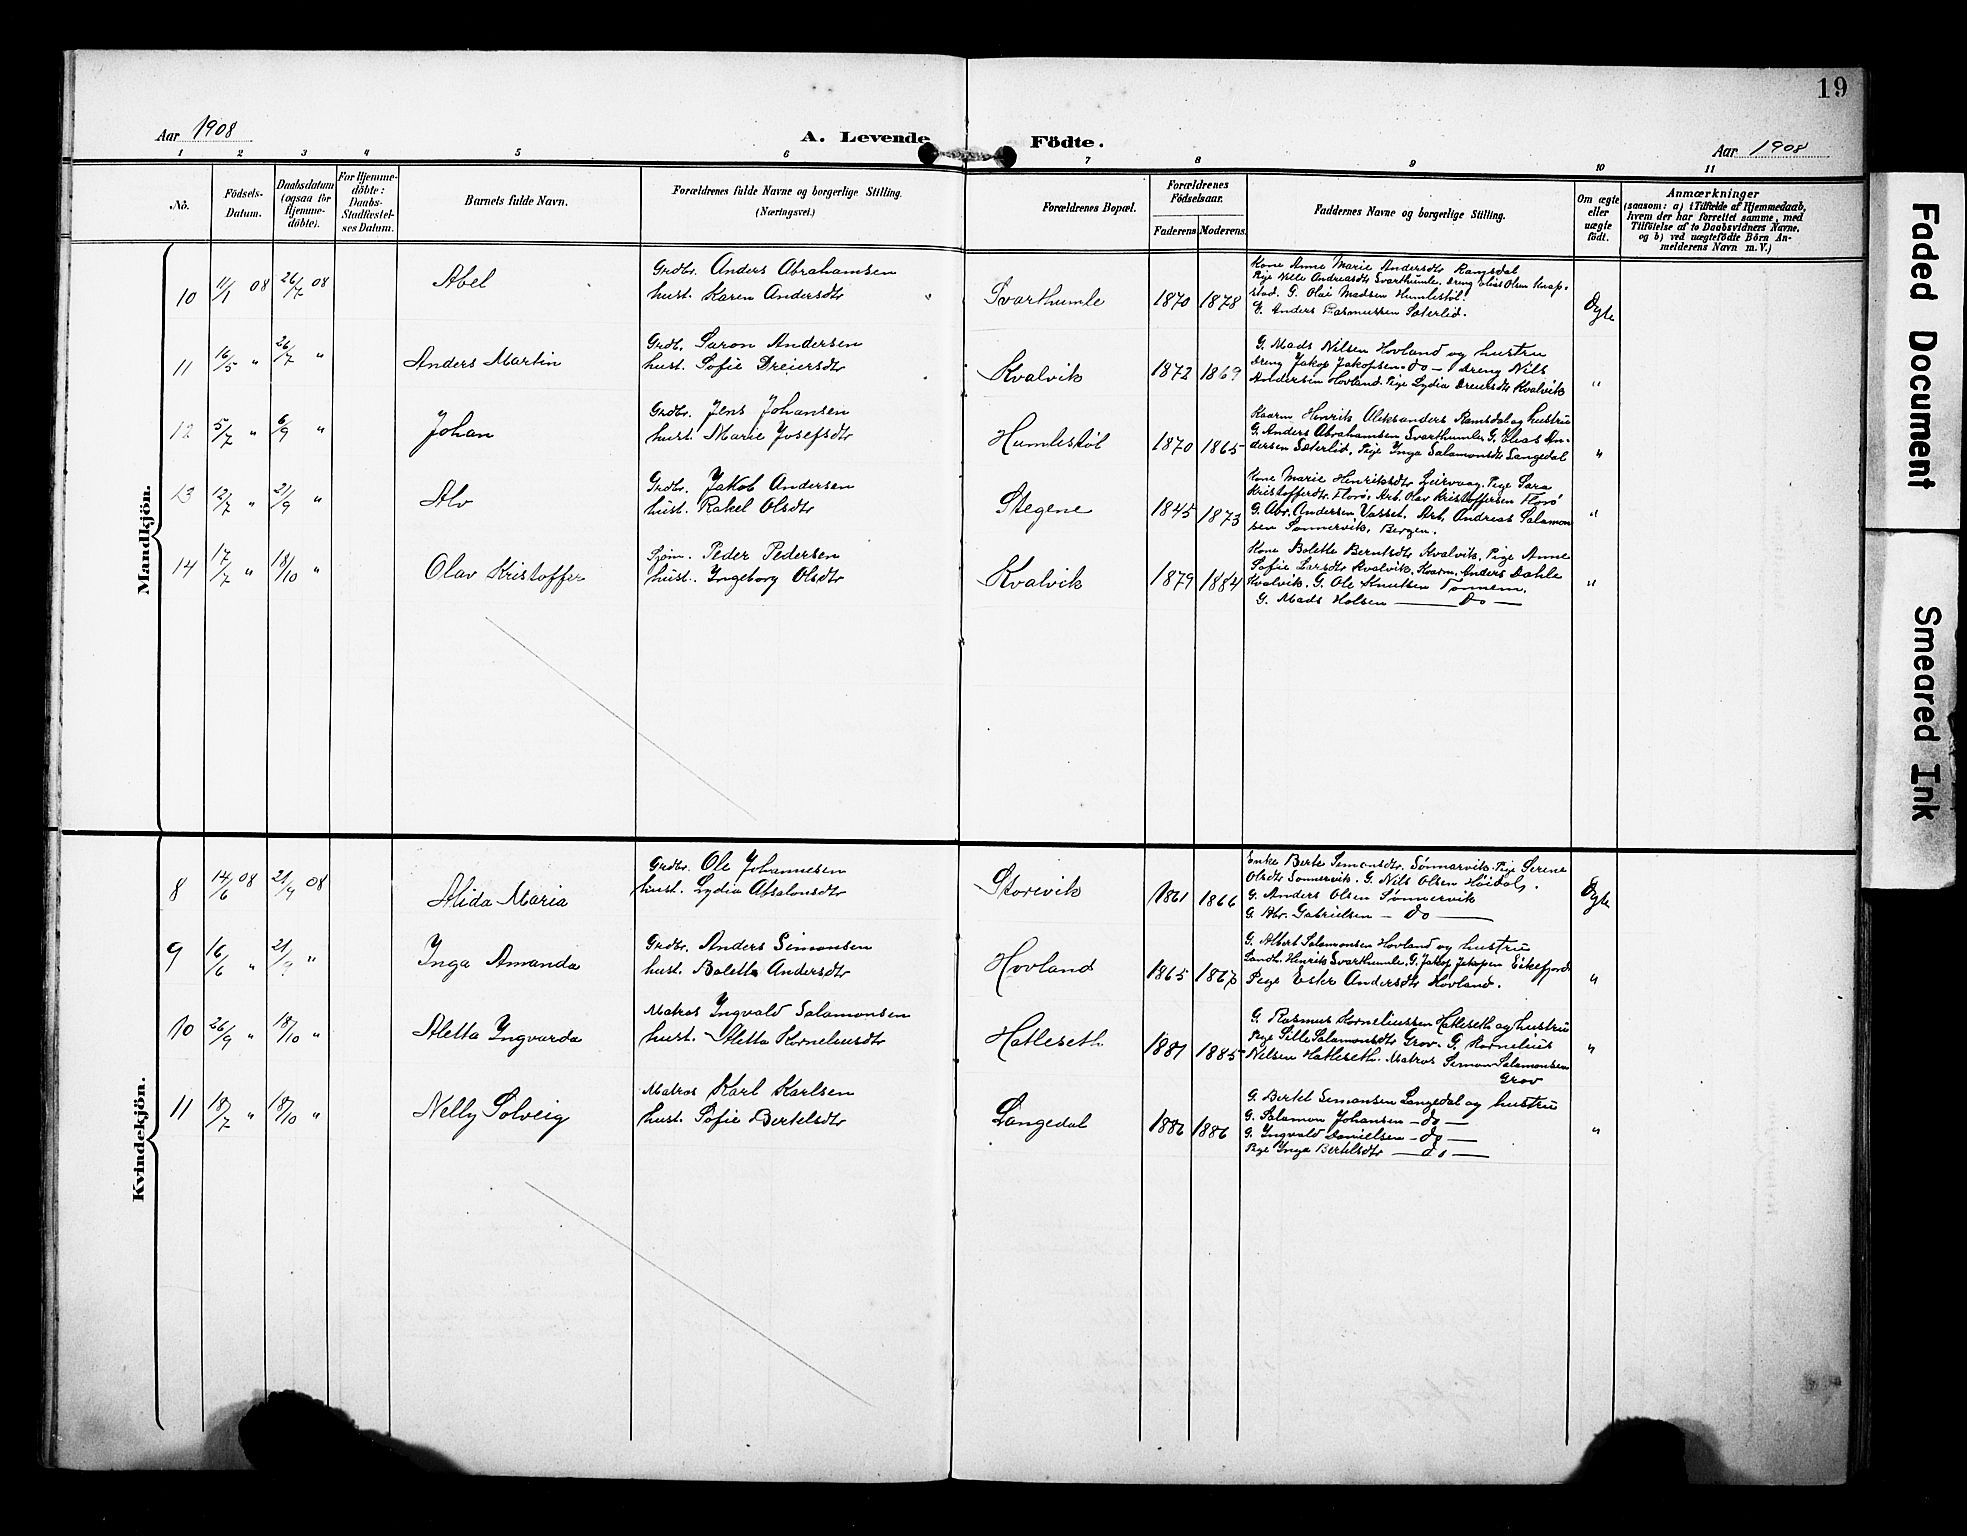 19
Aar 1908
A. Levende Födte.
Aar 1908
1 2 3 4 5 6 7 8 9 10 11
No.
Födsels-Datum.
Daabsdatum (ogsaa for Hjemme-döbte).
For Hjemme-döbte: Daabs-Stadfæstel-ses Datum.
Barnets fulde Navn.
Forældrenes fulde Navne og borgerlige Stilling.
(Næringsvei.)
Forældrenes Bopæl.
Forældrenes Födselsaar.
Faderens Moderens
Faddernes Navne og borgerlige Stilling.
Om ægte eller uægte födt.
Anmærkninger
(saasom: a) i Tilfælde af Hjemmedaab,
hvem der har forrettet samme, med
Tilföielse af to Daabsvidners Navne,
og b) ved uægtefödte Börn An-
melderens Navn m. V.)
Mandkjön.
10 11/1 08 26/7 08 Abel
Grdbr. Anders Abrahamsen
hust. Karen Andersdtr
Svarthumle 1870 1878
Kone Anne Marie Andersdtr Ramsdal
Pige Nille Andreasdtr Svarthumle. Dreng Elias Olsen Knap-
stad. G. Olai Madsen Humlestöl.
G. Anders Rasmussen Sæterlid.
Ægte
11 16/5 " 26/7 " Anders Martin
Grdb. Saron Andersen
hust. Sofie Dreiersdtr
Kvalvik 1872 1869
G. Mads Nilsen Hovland og hustru
Dreng Jakop Jakopsen - do - Dreng Nils
Andersen Hovland. Pige Lydia Dreiersdtr Kvalvik
"
12 5/7 " 6/9 " Johan
Grdbr. Jens Johansen
hust. Marie Josefsdtr
Humlestöl 1870 1865
Kaarm Henrik Aleksanders Ramsdal og hustru
G. Anders Abrahamsen Svarthumle. G. Elias An-
dersen Sæterlid, Pige Inga Salamonsdtr Langedal
"
13 12/7 " 21/9 " Alv
Grdbr. Jakob Andersen
hust. Rakel Olsdtr
Stegene 1845 1873
Kone Marie Henriksdtr Leirvaag. Pige Sara
Kristofferdtr. Florö, Arb. Olav Kristoffersen Florö
G. Abr. Andersen Vasset. Arb. Andreas Salamon
sen Sonnervik, Bergen.
"
14 17/7 " 18/10 " Olav Kristoffer
Sjöm. Peder Pedersen
hust. Ingeborg Olsdtr
Kvalvik 1879 1884
Kone Bolette Berntsdtr Kvalvik. Pige Anne
Sofie Larsdtr Kvalvik. Kaarm. Anders Dahle
Kvalvik. G. Ole Knutsen Tonnem.
G. Mads Holsen — Do —
"
Kvindekjön.
8 14/6 08 21/9 08 Alida Maria
Grdbr. Ole Johannesen
hust. Lydia Absalonsdtr
Storevik 1861 1866
Enke Berte Simonsdtr. Sönnarvik. Pige Serene
Olsdtr Sonnervik. G. Nils Olsen Höidal,
G. Anders Olsen Sönnervik
G. Abr. Gabrielsen — do —
Ægte
9 16/6 " 21/9 " Inga Amanda
Grdbr. Anders Simonsen
hust. Bolette Andersdtr
Hovland 1865
G. Albert Salamonsen Hovland og hustru
Landh. Henrik Svarthumle. G. Jakop Jakopsen Eikefjord
Pige Ester Andersdtr Hovland.
"
10 26/9 " 18/10 " Aletta Ingvarda
Matros Ingvald Salamonsen
hust. Aletta Korneliusdtr
Hatleseth 1881 1885
G. Rasmus Korneliussen Hatleseth og hustru
Pige Sille Salamonsdtr Grov. G. Kornelius
Nilsen Hatleseth. Matros Simon Salamonsen
Grov
"
11 18/7 " 18/10 " Nelly Solveig
Matros Karl Karlsen
hust. Sofie Bertelsdtr
Langedal 1886 1886
G. Bertel Simonsen Langedal og hustru
G. Salamon Johansen — do —
G. Ingvald Danielsen — do —
Pige Inga Bertelsdtr — do —
"
Faded Document
Smeared Ink